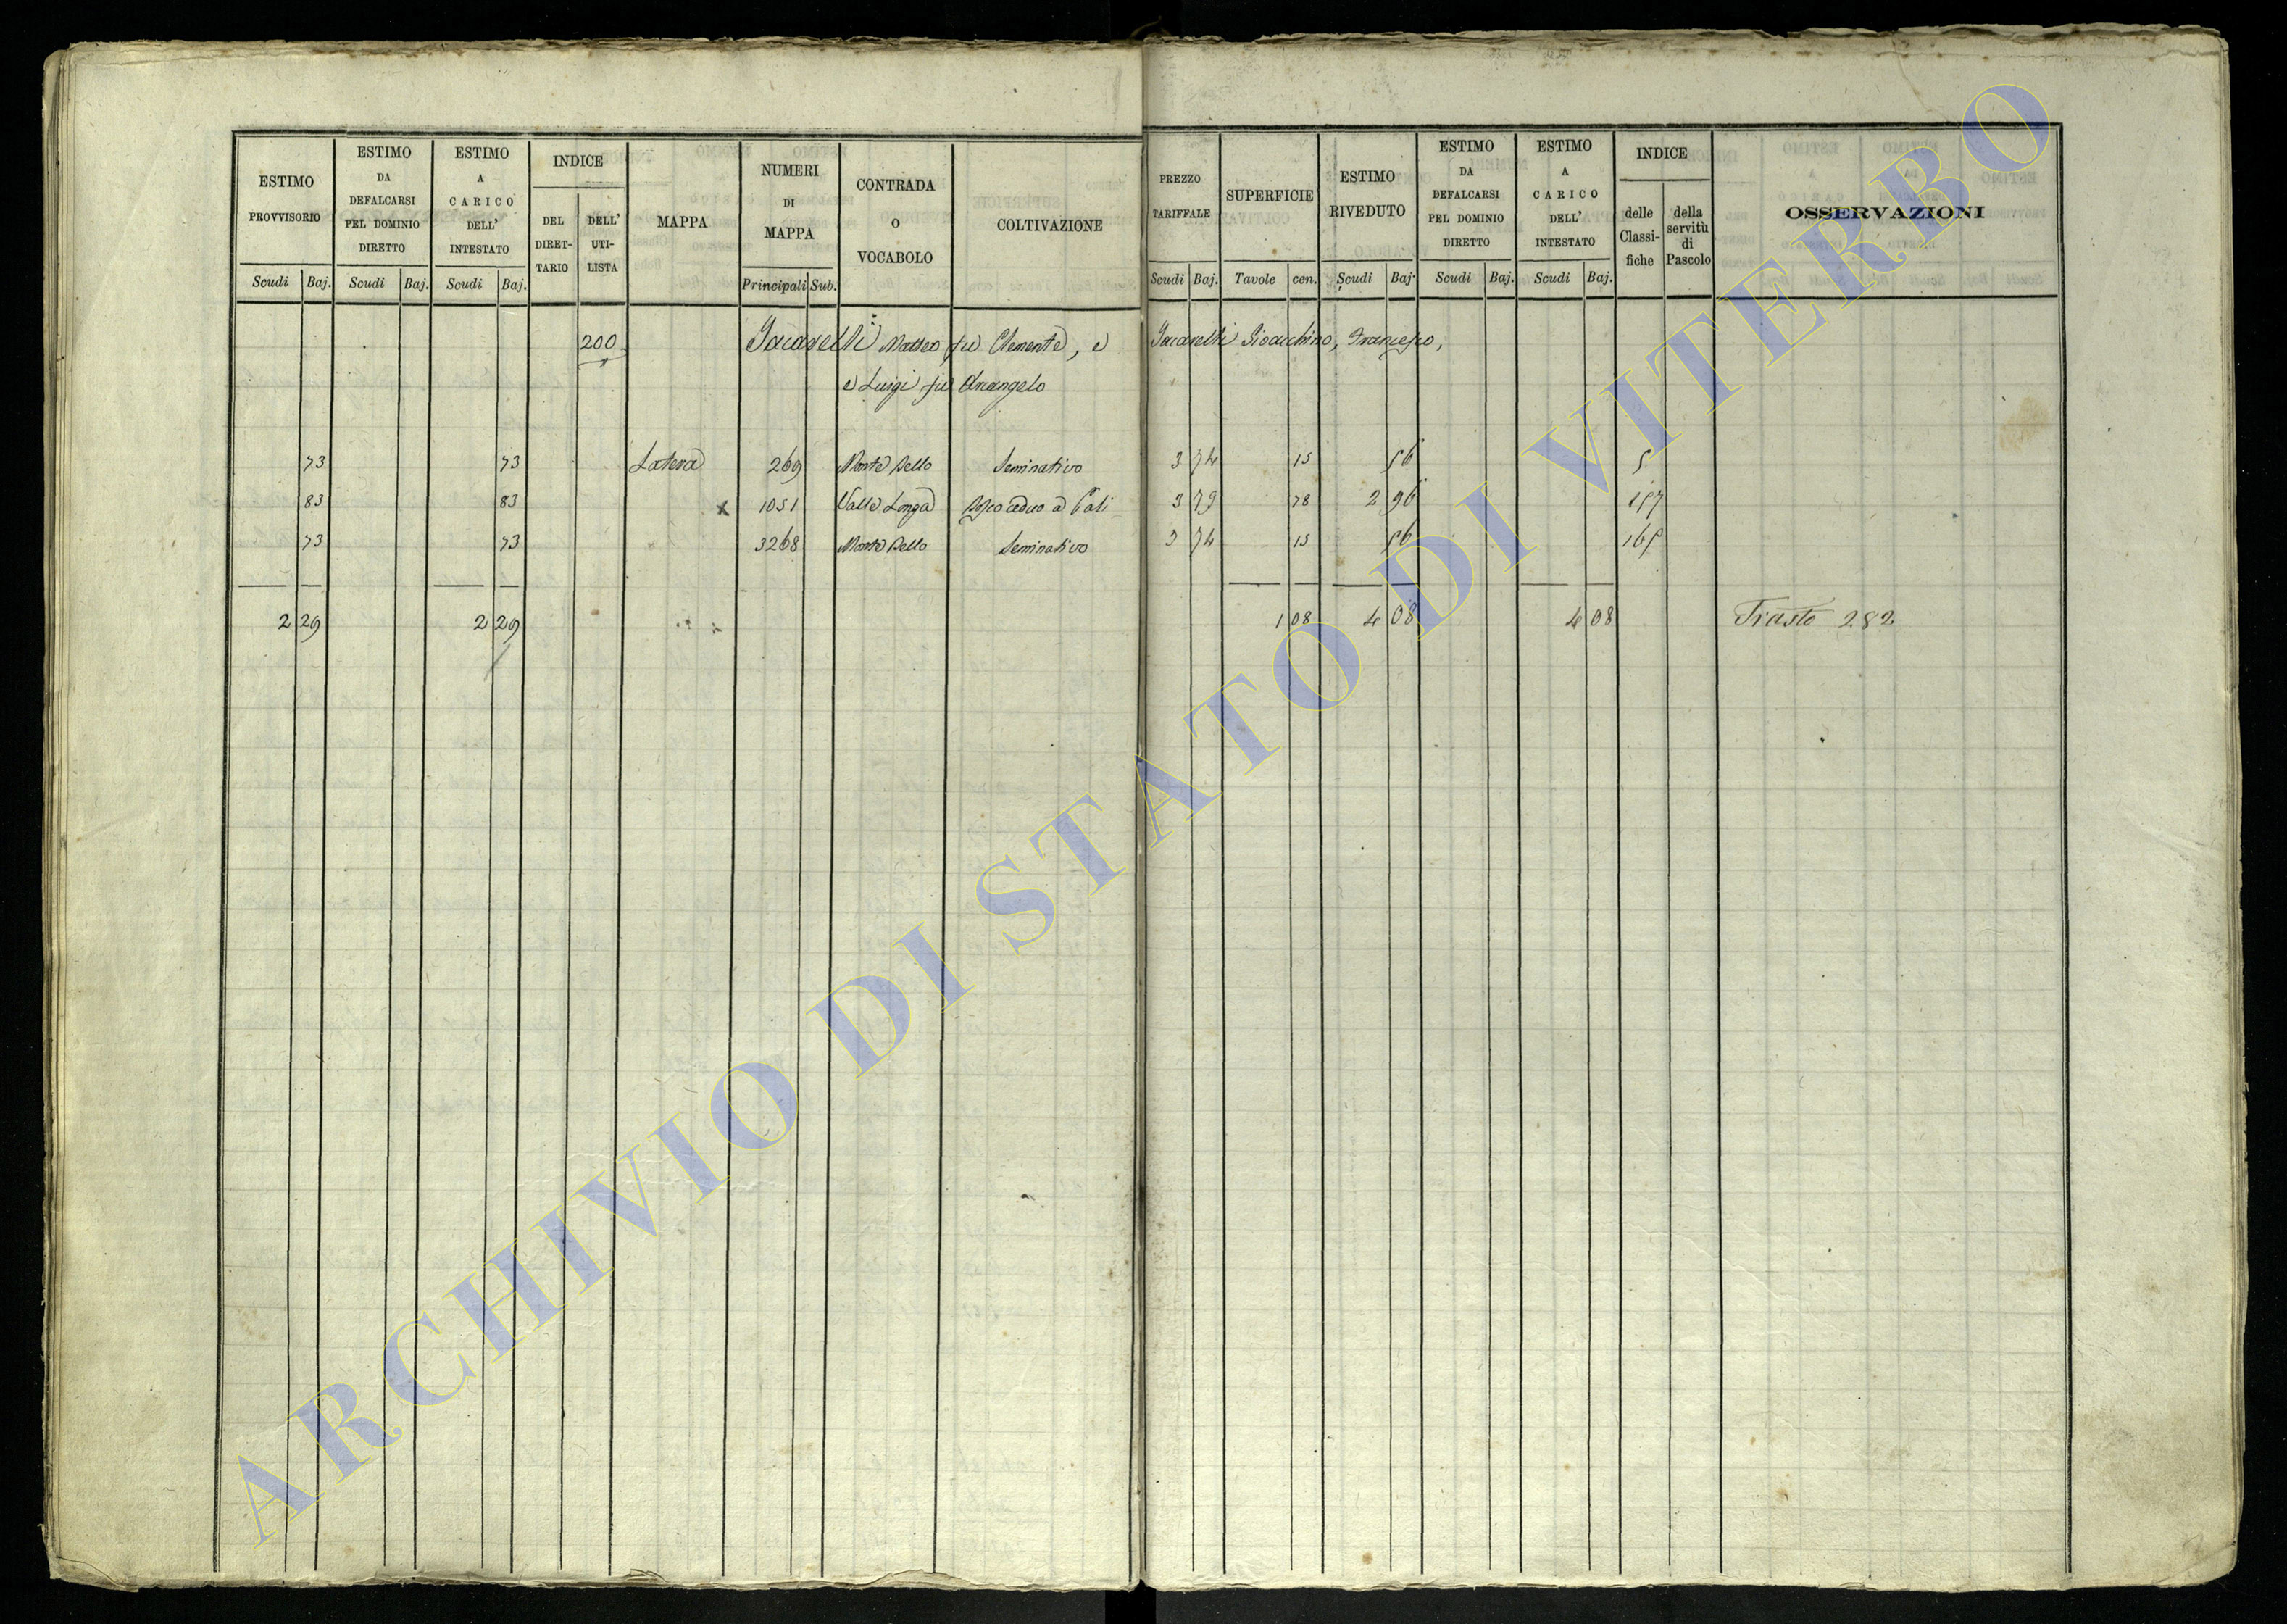 ESTIMO PROVVISORIO Scudi Baj.
ESTIMO DA DEFALCARSI PEL DOMINIO DIRETTO Scudi Baj.
ESTIMO A CARICO DELL' INTESTATO Scudi Baj.
INDICE DEL DIRET- TARIO DELL' UTI- LISTA
MAPPA
NUMERI DI MAPPA Principali Sub.
CONTRADA O VOCABOLO
COLTIVAZIONE
PREZZO TARIFFALE Scudi Baj.
SUPERFICIE Tavole cen.
ESTIMO RIVEDUTO Scudi Baj.
ESTIMO DA DEFALCARSI PEL DOMINIO DIRETTO Scudi Baj.
ESTIMO A CARICO DELL' INTESTATO Scudi Baj.
INDICE delle Classi- fiche della servitù di Pascolo
OSSERVAZIONI
200 Matteo fu Clemente, e Gioacchino, Francesco,
e Luigi fu Arcangelo
73 73 Latera 269 Monte Bello Seminativo 3 74 15 56 5
83 83 x 1051 Valle Longa Bosco ceduo a Pali 3 79 78 2 96 157
73 73 3268 Monte Bello Seminativo 3 74 15 56 165
2 29 2 29 1 08 4 08 4 08 282
ARCHIVIO DI STATO DI VITERBO